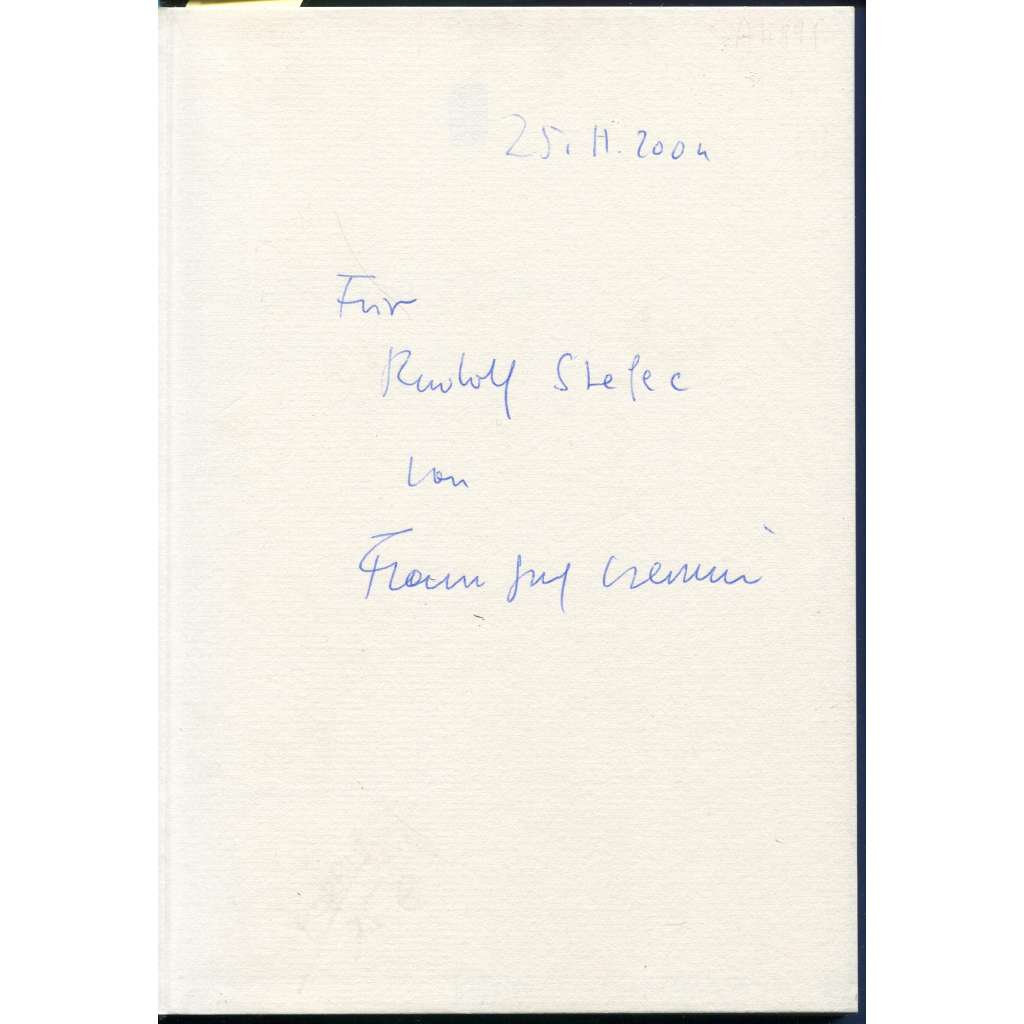 25. II. 2004
Für
Rudolf Stefec
von
Franz Josef Czernin